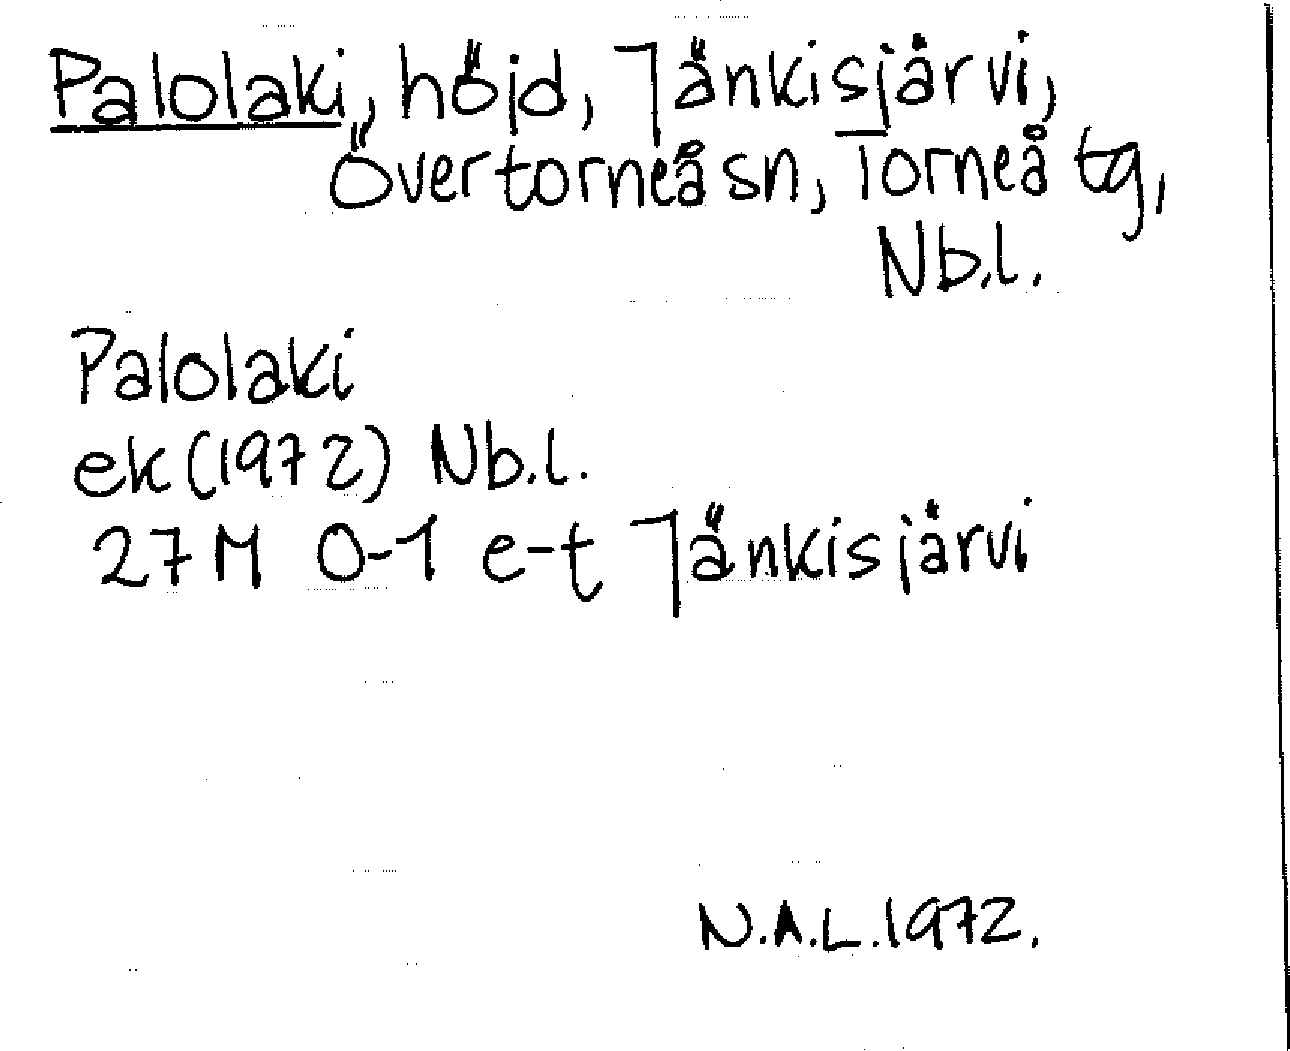 Palolaki, höjd, Jänkisjärvi,
Övertorneå sn, Torneå tg,
Nb.l.
Palolaki
ek (1972) Nb.l.
27M 0-1 e-t Jänkisjärvi
N.A.L. 1972.